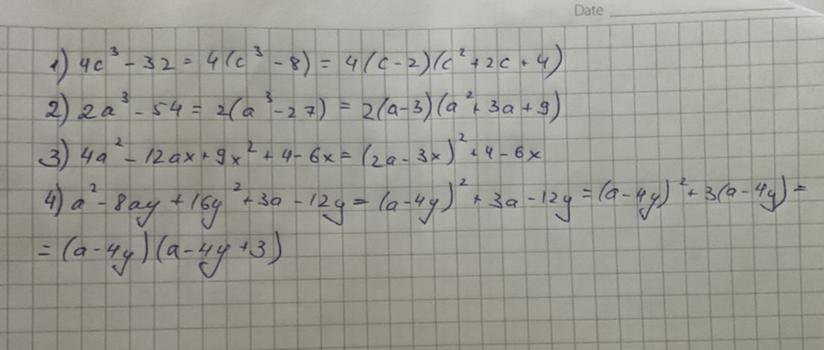 Date
1) 4c³ - 32 = 4(c³ - 8) = 4(c - 2)(c² + 2c + 4)
2) 2a³ - 54 = 2(a³ - 27) = 2(a - 3)(a² + 3a + 9)
3) 4a² - 12ax + 9x² + 4 - 6x = (2a - 3x)² + 4 - 6x
4) a² - 8ay + 16y² + 3a - 12y = (a - 4y)² + 3a - 12y = (a - 4y)² + 3(a - 4y) =
= (a - 4y)(a - 4y + 3)